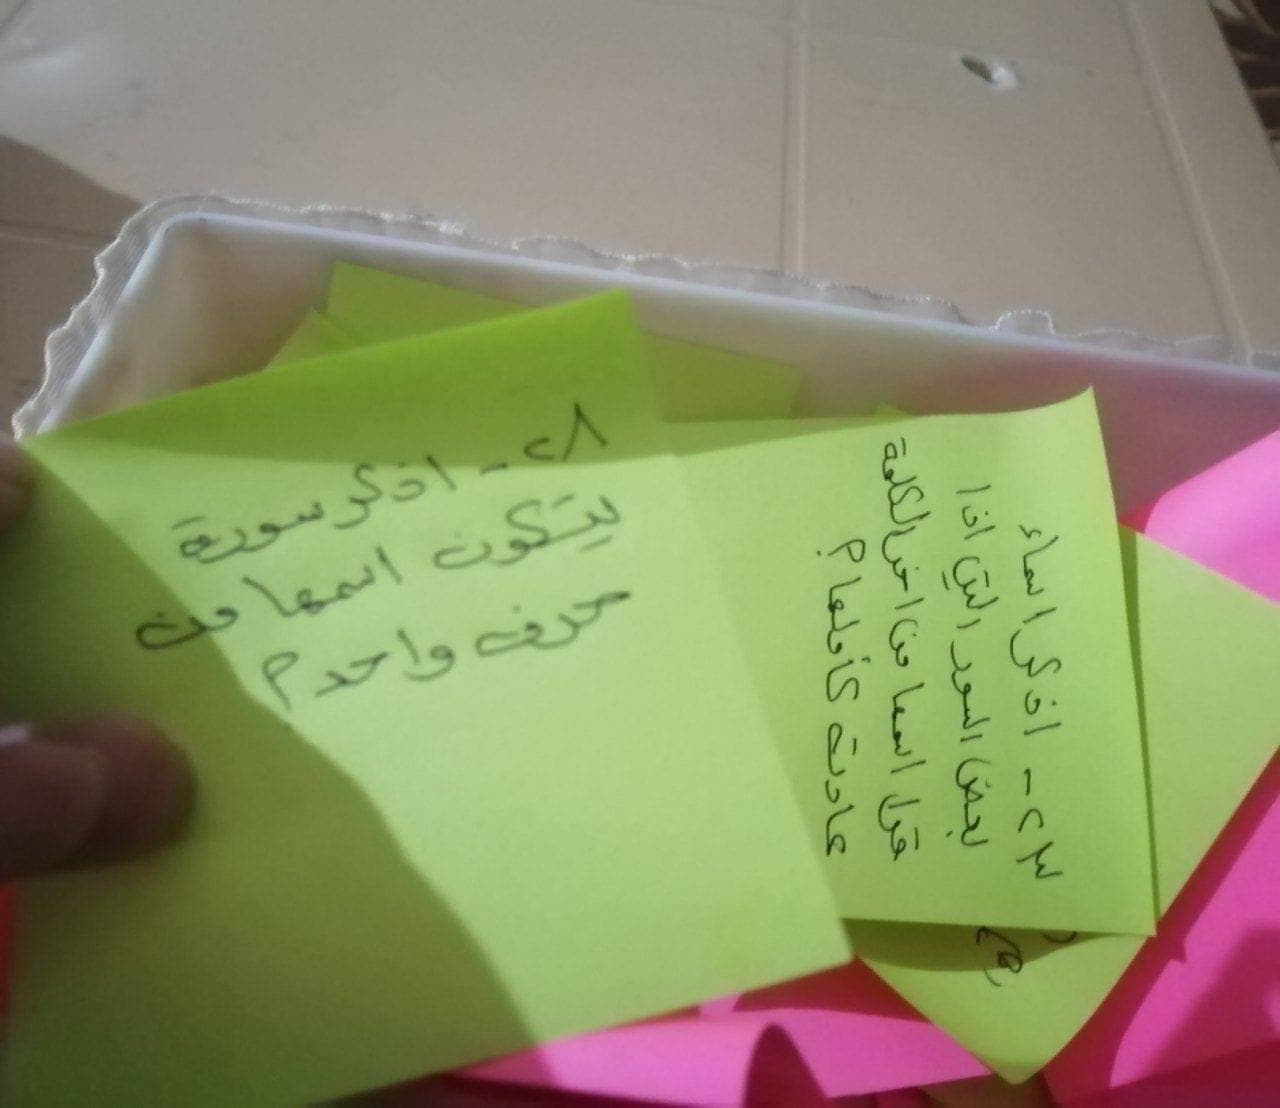 ٢٨- اذكر سورة
يتكون اسمها من
حرف واحد؟
٢٣- اذكر اسماء
بعض السور التي اذا
قرا اسمها من اخر الكلمة
عادت كأولها؟